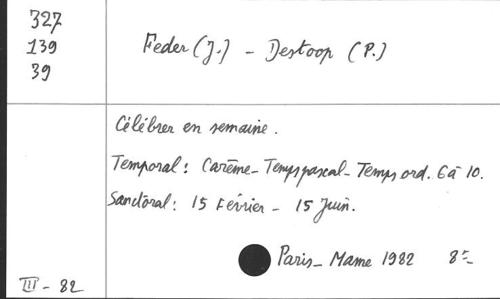 327
139
39
Feder (J.) - Destoop (P.)
Célébrer en semaine.
Temporal: Carême - Temps pascal - Temps ord. 6 à 10.
Sanctoral: 15 Février - 15 Juin.
Paris - Mame 1982 8°
III - 82